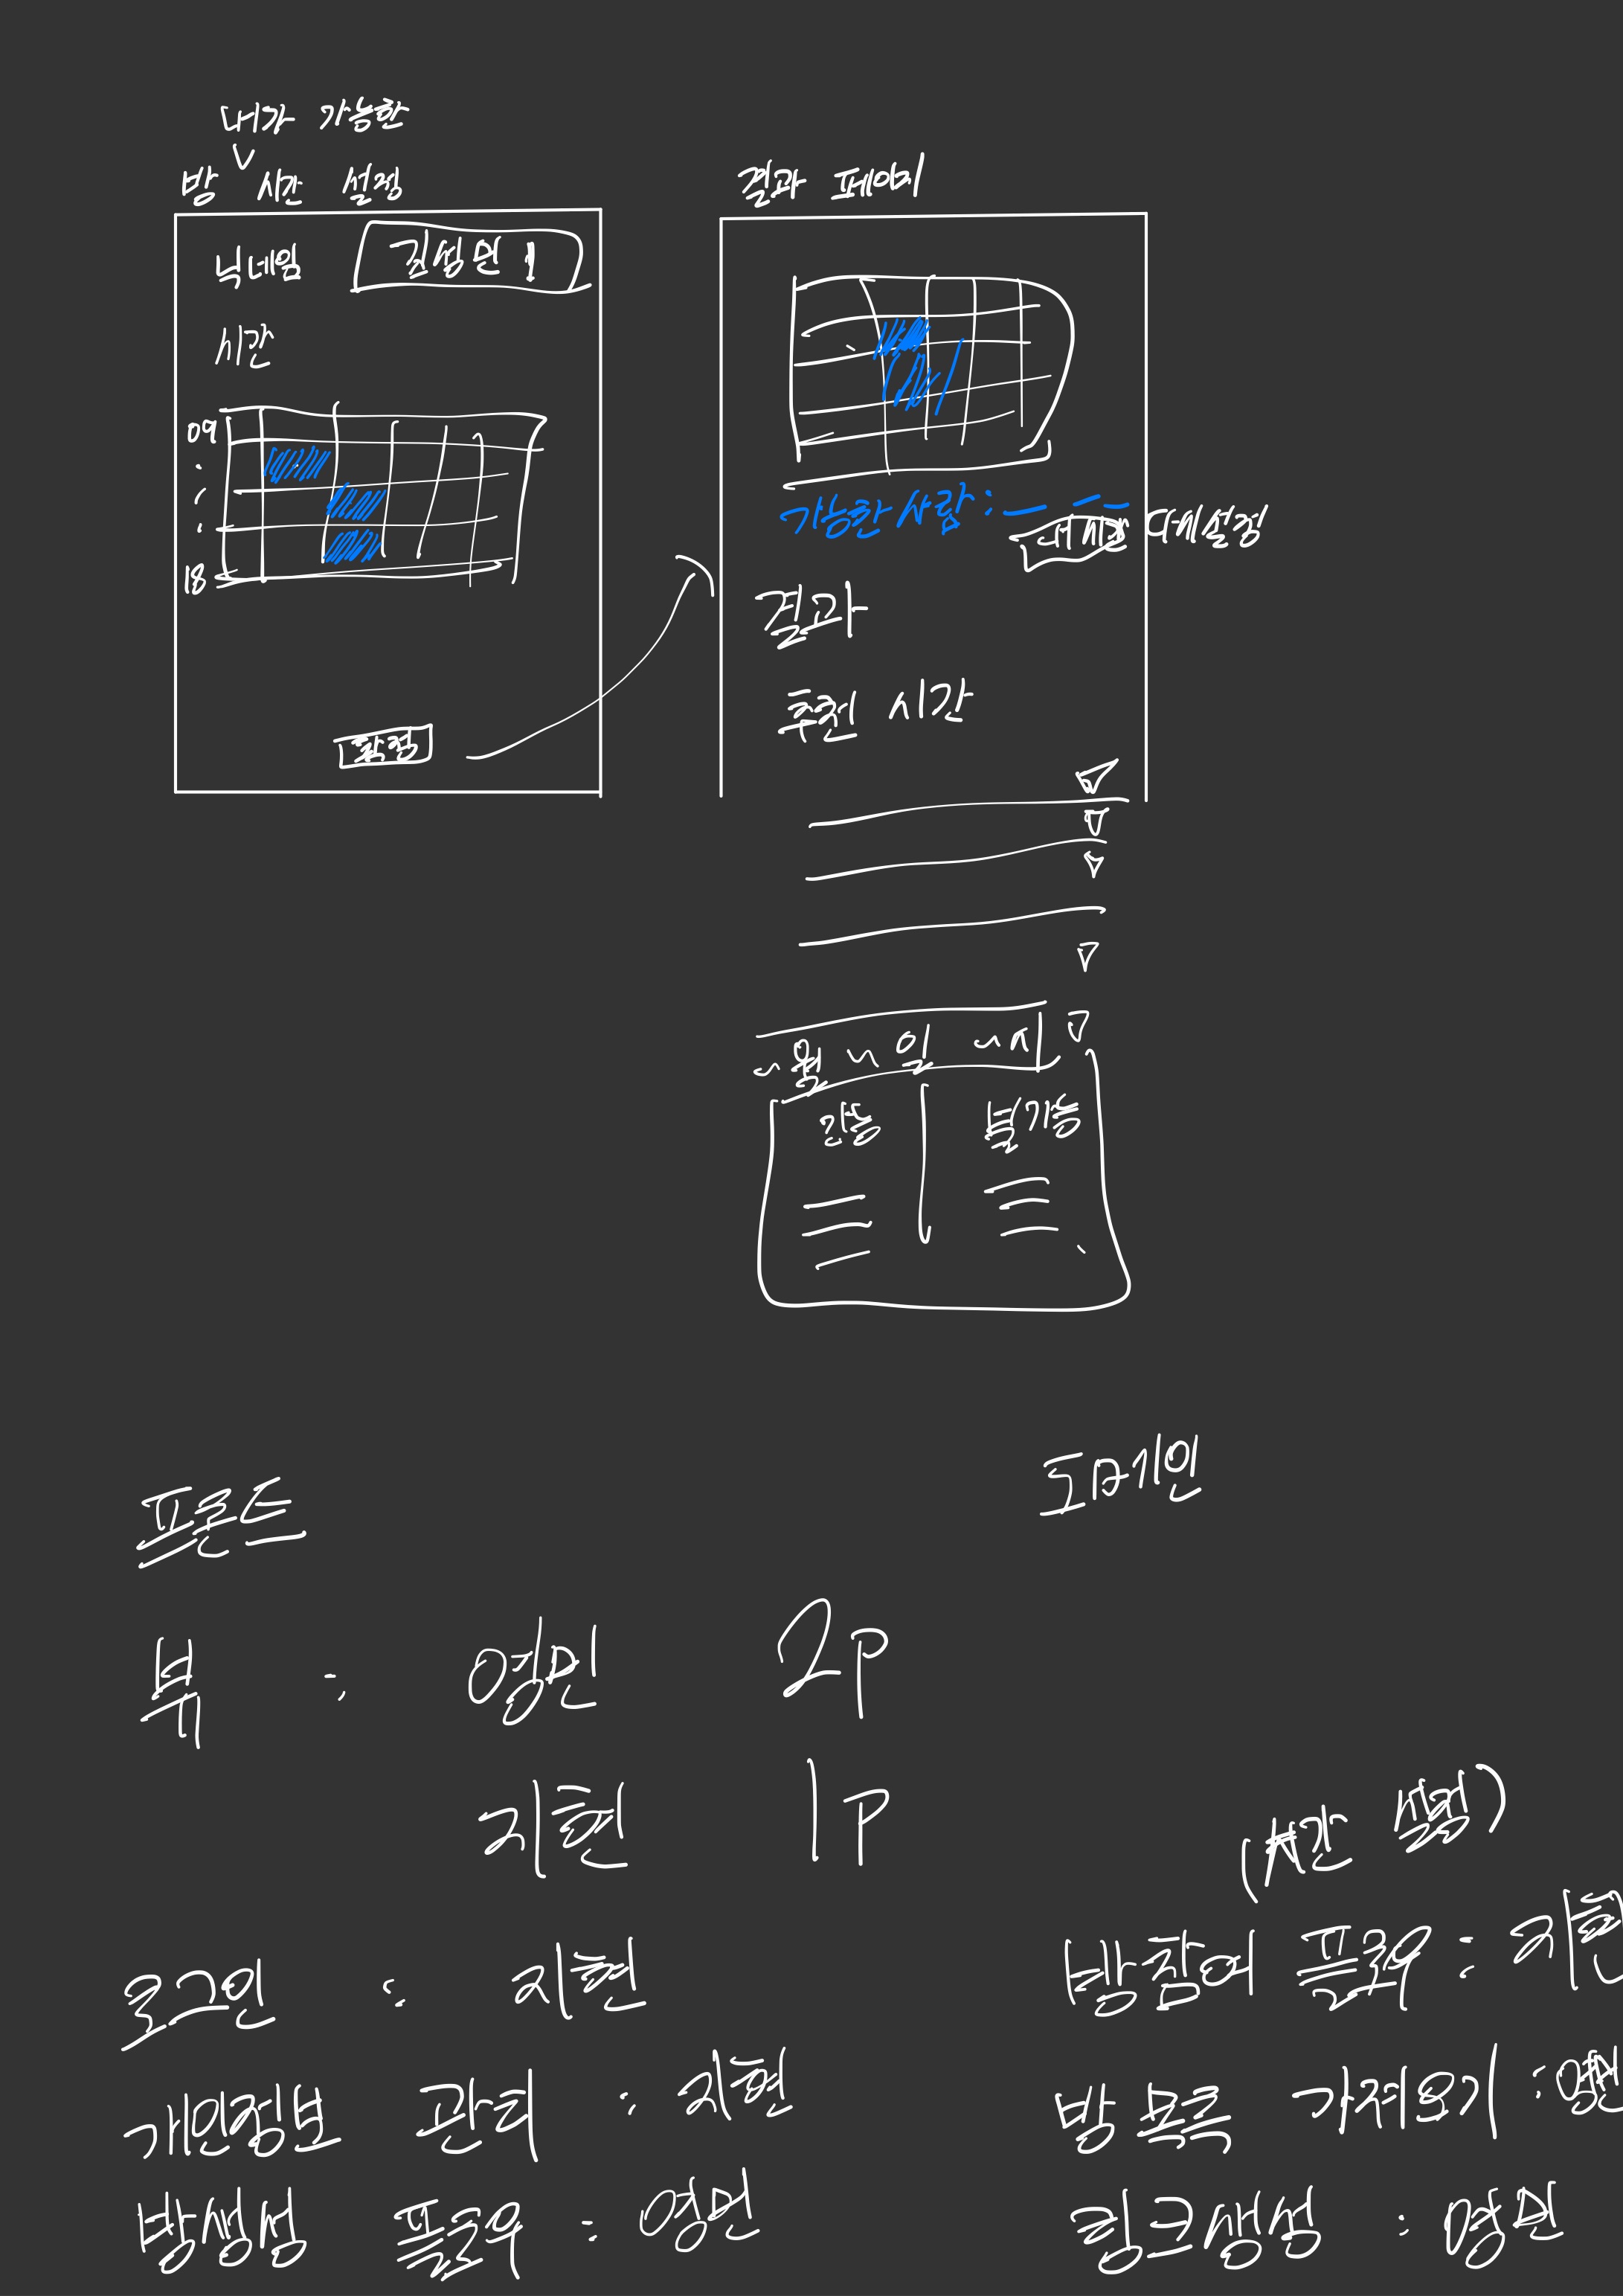 내가 가능한
방 시간 설정
닉네임
시간
09
18
결과 페이지
가능한 사람 :
결과
추천 시간
~월 ~일 ~시
가능 불가능
프론트
도메인
뷰 : 영민 2P
지현 1P
(시간 설정)
로그인 : 지현
방 참여 플로우 : 지현
개인정보 관리 : 지현
방 목록 가져오기 : 영민
방생성 플로우 : 영민
링크 생성 : 영민